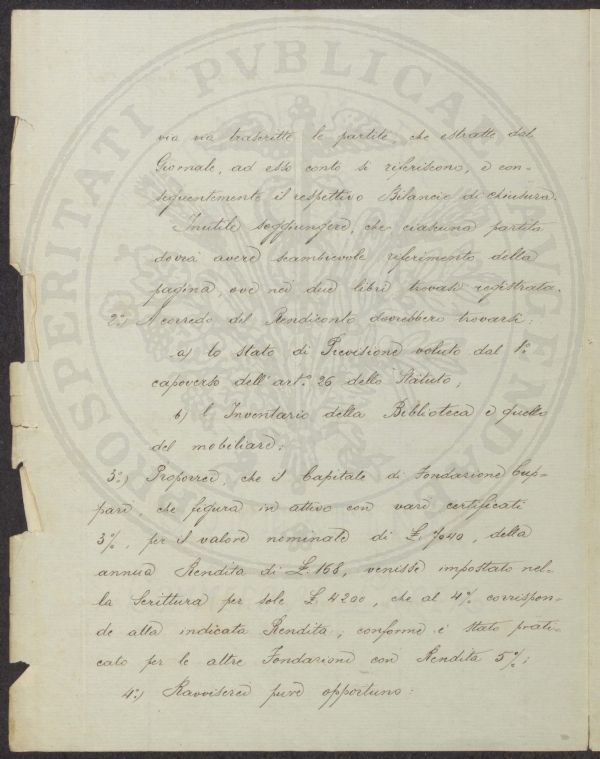 PROSPERITATI PVBLICAE AVGENDAE
via via trascritte le partite, che estratte dal
Giornale, ad esso conto si riferiscono, e con-
seguentemente il respettivo Bilancio di chiusura.
Inutile soggiungere, che ciascuna partita
dovrà avere scambievole riferimento della
pagina, ove nei due libri trovasi registrata.
2°) A corredo del Rendiconto dovrebbero trovarsi:
a) lo Stato di Previsione voluto dal 1°
capoverso dell'art.° 26 dello Statuto,
b) l'Inventario della Biblioteca e quello
del mobiliare;
3°) Proporrei, che il Capitale di Fondazione Cup-
pari, che figura in attivo con vari certificati
3%, per il valore nominale di £. della
annua Rendita di £. 168, venisse impostato nel-
la Scrittura per sole £. 4200, che al 4% corrispon-
de alla indicata Rendita, conforme è stato prati-
cato per le altre Fondazioni con Rendita 5%;
4°) Ravviserei pure opportuno: